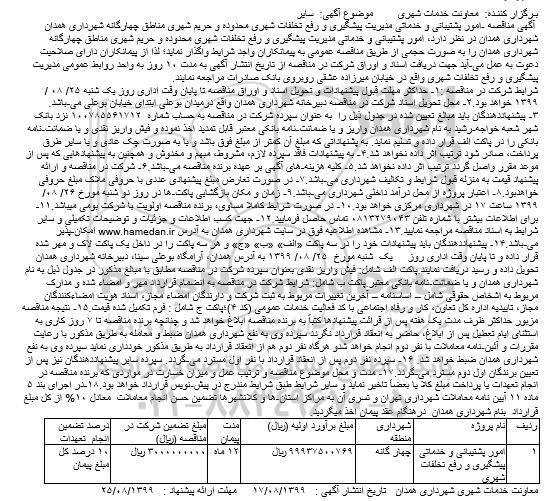 برگزار کننده: معاونت خدمات شهری موضوع آگهی: سایر
آگهی مناقصه -امور پشتیبانی و خدماتی مدیریت پیشگیری و رفع تخلفات شهری محدوده و حریم شهری مناطق چهارگانه شهرداری همدان
شهرداری همدان در نظر دارد، امور پشتیبانی و خدماتی مدیریت پیشگیری و رفع تخلفات شهری محدوده و حریم شهری مناطق چهارگانه
شهرداری همدان را به صورت حجمی از طریق مناقصه عمومی به پیمانکاران واجد شرایط واگذار نماید؛ لذا از پیمانکاران دارای صلاحیت
دعوت به عمل می‌آید جهت دریافت اسناد و اوراق شرکت در مناقصه از تاریخ انتشار آگهی به مدت ۱۰ روز به واحد روابط عمومی مدیریت
پیشگیری و رفع تخلفات شهری واقع در خیابان میرزاده عشقی روبروی بانک صادرات مراجعه نمایند.
شرایط شرکت در مناقصه: ۱- حداکثر مهلت قبول پیشنهادات و تحویل اسناد و اوراق مناقصه تا پایان وقت اداری روز یک شنبه ۲۵/ ۰۸ /
۱۳۹۹ خواهد بود.۲- محل تحویل اسناد شرکت در مناقصه دبیرخانه شهرداری همدان واقع درمیدان بوعلی ابتدای خیابان بوعلی می‌باشد.
۳- پیشنهاددهندگان باید مبلغ تعیین شده در جدول ذیل را به عنوان سپرده شرکت در مناقصه به حساب شماره ۱۰۰۷۸۵۵۶۱۷۱۲ نزد بانک
شهر شعبه خواجه رشید به نام شهرداری همدان واریز و یا ضمانت‌نامه بانکی معتبر قابل تمدید اخذ نموده و فیش واریز نقدی و یا ضمانت‌نامه
بانکی را در پاکت الف قرار داده و تسلیم نماید. به پیشنهاداتی که مبلغ آن کمتر از مبلغ فوق باشد و یا به صورت چک عادی و یا سایر طرق
پرداخت، صادر شود ترتیب اثر داده نخواهد شد.۴- به پیشنهادات فاقد سپرده لازم، مشروط، مبهم و مخدوش و همچنین به پیشنهادهایی که پس از
موعد مقرر واصل گردد، ترتیب اثر داده نخواهد شد.۵- کلیه هزینه‌های آگهی بر عهده برنده مناقصه می‌باشد.۶- شرکت در مناقصه و ارائه
پیشنهاد قیمت به منزله قبول شرایط و تکالیف شهرداری می‌باشد.۷- در صورت تعارض مبلغ پیشنهادی عددی با حروفی ملاک مبلغ حروفی
خواهدبود.۸- اعتبار پروژه از محل درآمد داخلی شهرداری می‌باشد.۹- زمان و مکان بازگشایی پاکت‌ها در روز دو شنبه مورخ ۲۶/ ۰۸/
۱۳۹۹ ساعت ۱۷ در شهرداری مرکزی خواهد بود.۱۰- در صورت شرایط کاملا مساوی، برنده مناقصه اولویت با شرکت بومی میباشد.۱۱-
برای اطلاعات بیشتر با شماره تلفن ۰۸۱۳۲۷۹۰۴۳ تماس حاصل فرمایید.۱۲- جهت کسب اطلاعات و جزئیات و توضیحات تکمیلی و سایر
شرایط به اسناد مناقصه مراجعه نمایید.۱۳- مشاهده اطلاعیه فوق در سایت شهرداری همدان به آدرس www.hamedan.ir امکان‌پذیر
می‌باشد.۱۴- پیشنهاددهندگان باید پیشنهادات خود را در سه پاکت «الف»، «ب»، «ج» و هر سه پاکت را در داخل یک پاکت لاک و مهر شده
قرار داده و تا پایان وقت اداری روز یک شنبه مورخ ۲۵/ ۰۸/ ۱۳۹۹ به آدرس همدان، آرامگاه بوعلی سینا، دبیرخانه شهرداری همدان
تحویل داده و رسید دریافت نمایند.پاکت الف شامل: فیش واریز نقدی بعنوان سپرده شرکت در مناقصه مطابق با مبلغ مذکور در جدول ذیل به نام
شهرداری همدان و یا ضمانت‌نامه بانکی معتبر.پاکت ب شامل: شرایط شرکت در مناقصه به انضمام قرارداد مهر و امضاء شده و مدارک
مربوط به اشخاص حقوقی شامل – اساسنامه – آخرین تغییرات مربوط به ثبت شرکت و دارندگان امضاء مجاز، اسناد هویت امضاءکنندگان
مجاز، تاییدیه اداره کل تعاون، کار و رفاه اجتماعی با کد فعالیت خدمات عمومی (کد ۴)پاکت ج شامل : فرم تکمیل شده قیمت.۱۵- نتیجه مناقصه
مزبور حداکثر ظرف مدت یک هفته پس از قرائت پیشنهادها کتباً به برنده مناقصه ابلاغ خواهد شد و چنانچه برنده مناقصه تا ۷ روز کاری به
استثنای ایام تعطیل پس از ابلاغ، حاضر به انعقاد قرارداد نگردد سپرده وی به نفع شهرداری همدان ضبط و معامله به طریق مذکور با رعایت
مقررات و آئین‌نامه معاملات با نفر دوم انجام خواهد شد و هرگاه نفر دوم هم از انعقاد قرارداد به طریق مذکور خودداری نماید سپرده وی به نفع
شهرداری همدان ضبط خواهد شد. ۱۶- سپرده نفر دوم پس از انعقاد قرارداد با نفر اول مسترد می‌گردد. سپرده سایر پیشنهاددهندگان نیز پس از
تعیین برندگان اول دوم مسترد می‌گردد.۱۷- مدت و محل موضوع مناقصه و ترتیب عمل و میزان خسارت در مواردی که برنده مناقصه در
انجام تعهدات یا پرداخت مبلغ کلا یا بعضاً تاخیر نماید و سایر شرایط طبق شرایط مندرج در پیش‌نویس قرارداد خواهد بود.۱۸-در اجرای بند ۵
ماده ۱۱ آیین نامه معاملات شهرداری تهران و تسری آن به مراکز استان ها و کلانشهرها تضمین حسن انجام معاملات معادل ۱۰% از کل مبلغ
قرارداد بنام شهرداری همدان درهنگام عقد پیمان اخذ میگردید.
ردیف نام پروژه شهرداری منطقه مبلغ برآورد اولیه (ریال) مدت پیمان مبلغ تضمین شرکت در مناقصه (ریال) درصد تضمین انجام تعهدات
۱ امور پشتیبانی و خدماتی پیشگیری و رفع تخلفات شهری چهار گانه ۹۹۹۳۷۵۰۰۷۶۹ریال ۱۲ ماه ۳۰۰۰۰۰۰۰۰۰ ریال ۱۰ درصد کل مبلغ پیمان
معاونت خدمات شهری شهرداری همدان تاریخ انتشار آگهی : ۱۷/۰۸/۱۳۹۹ مهلت ارائه پیشنهاد : ۲۵/۰۸/۱۳۹۹